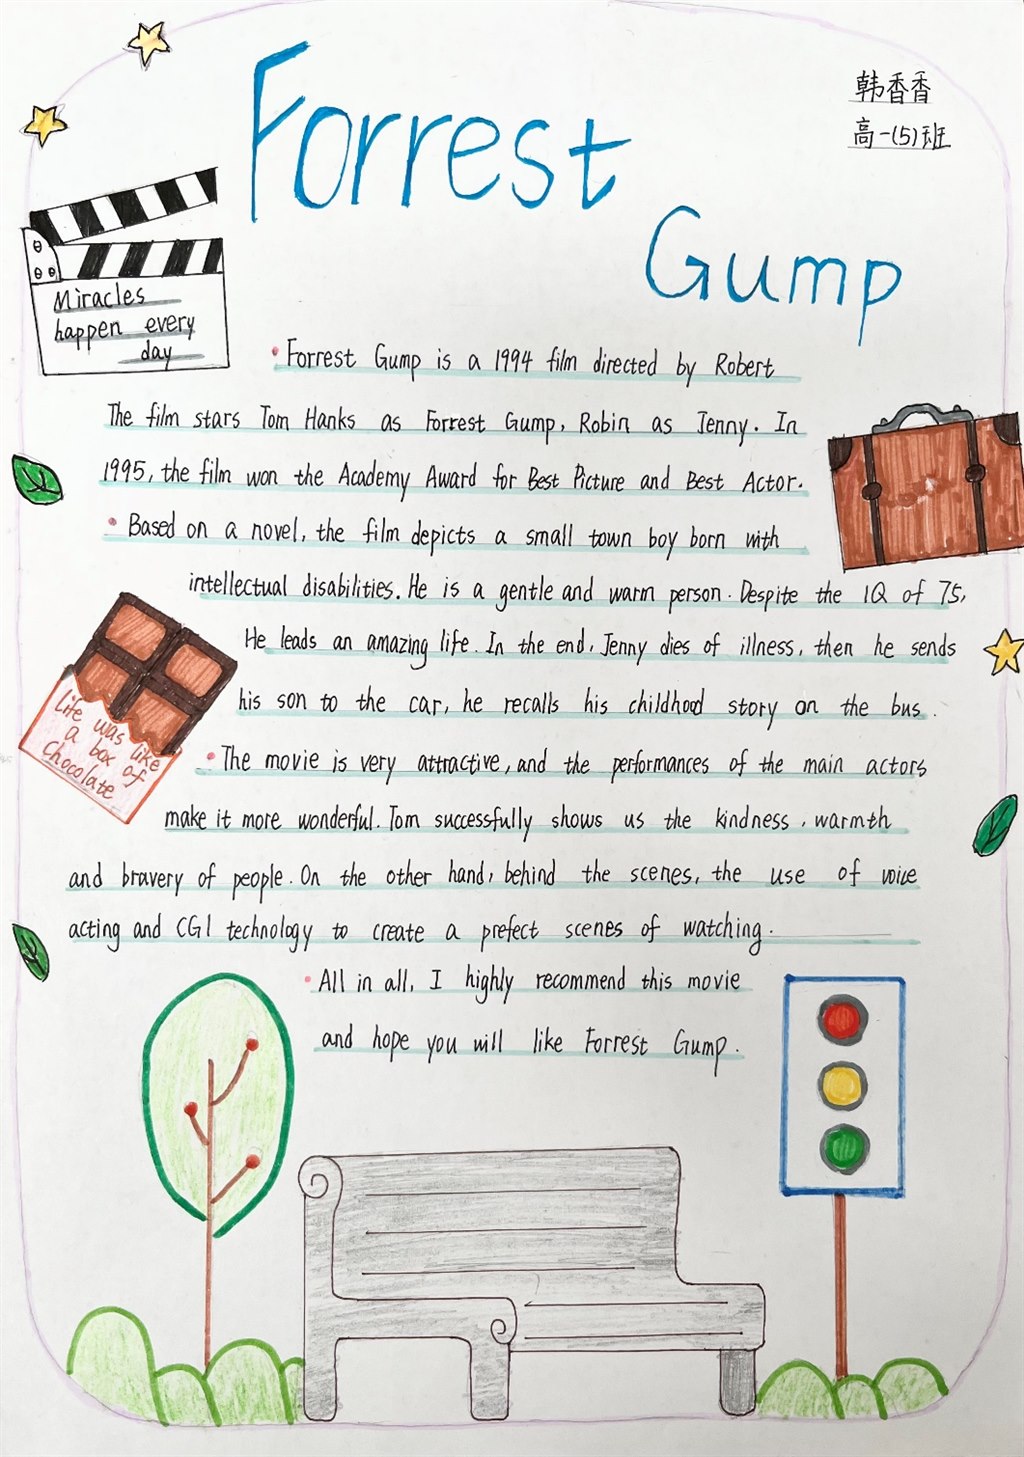 Forrest
Gump
韩香香
高一(5)班
Miracles
happen every
day
Forrest Gump is a 1994 film directed by Robert
The film stars Tom Hanks as Forrest Gump, Robin as Jenny. In
1995, the film won the Academy Award for Best Picture and Best Actor.
Based on a novel, the film depicts a small town boy born with
intellectual disabilities. He is a gentle and warm person. Despite the IQ of 75,
He leads an amazing life. In the end, Jenny dies of illness, then he sends
his son to the car, he recalls his childhood story on the bus.
Life was like
a box of
chocolate
The movie is very attractive, and the performances of the main actors
make it more wonderful. Tom successfully shows us the kindness, warmth
and bravery of people. On the other hand, behind the scenes, the use of voice
acting and CGI technology to create a prefect scenes of watching.
All in all, I highly recommend this movie
and hope you will like Forrest Gump.